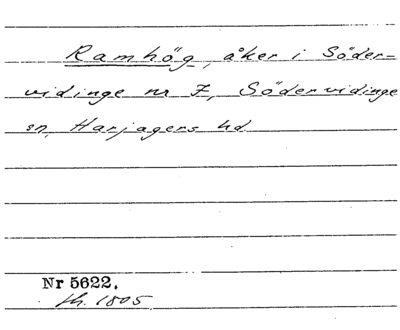 Ramhög, åker i Söder-
vidinge nr 7, Södervidinge
sn, Harjagers hd
Nr 5622.
1805